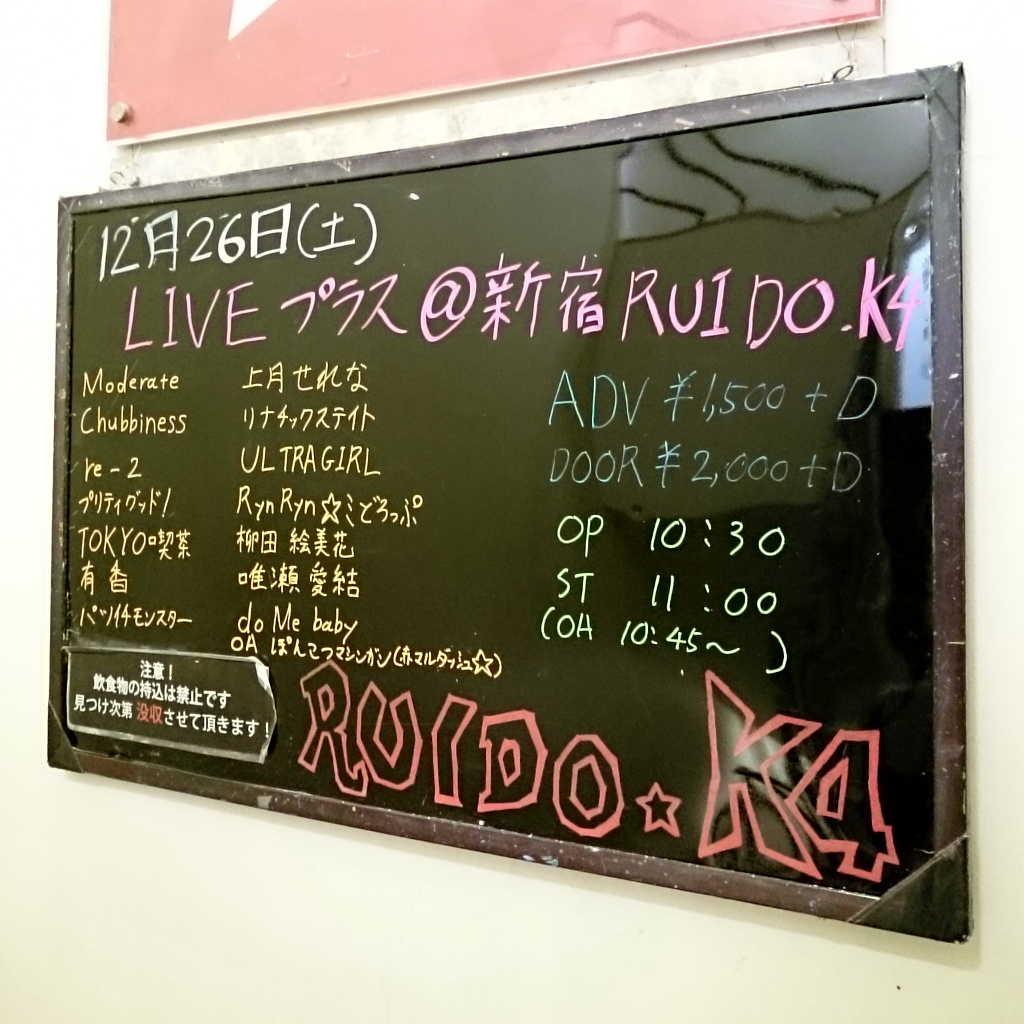 12月26日(土)
LIVEプラス@新宿RUIDO.K4
Moderate
Chubbiness
re-2
プリティグッド!
TOKYO喫茶
有香
バツイチモンスター
上月せれな
リナチックステイト
ULTRAGIRL
RynRyn☆こどろっぷ
柳田絵美花
唯瀬愛結
do Me baby
OA ぽんこつマシンガン(赤マルダッシュ☆)
ADV ¥1,500+D
DOOR ¥2,000+D
OP 10:30
ST 11:00
(OA 10:45~ )
注意!
飲食物の持込は禁止です
見つけ次第 没収させて頂きます!
RUIDO★K4